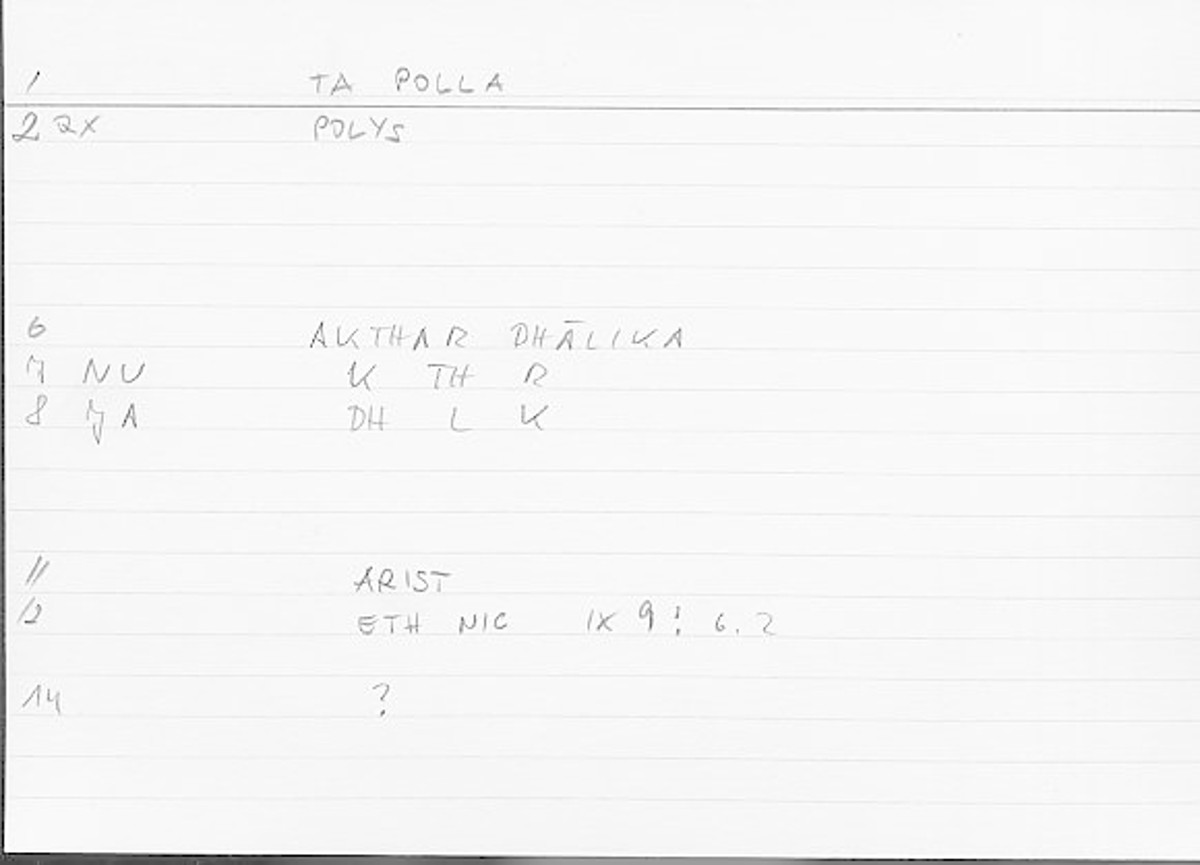 1 TA POLLA
2 2X POLYS
6 AKTHAR DHĀLIKA
7 NU K TH R
8 JA DH L K
11 ARIST
12 ETH NIC IX 9 : 6.2
14 ?